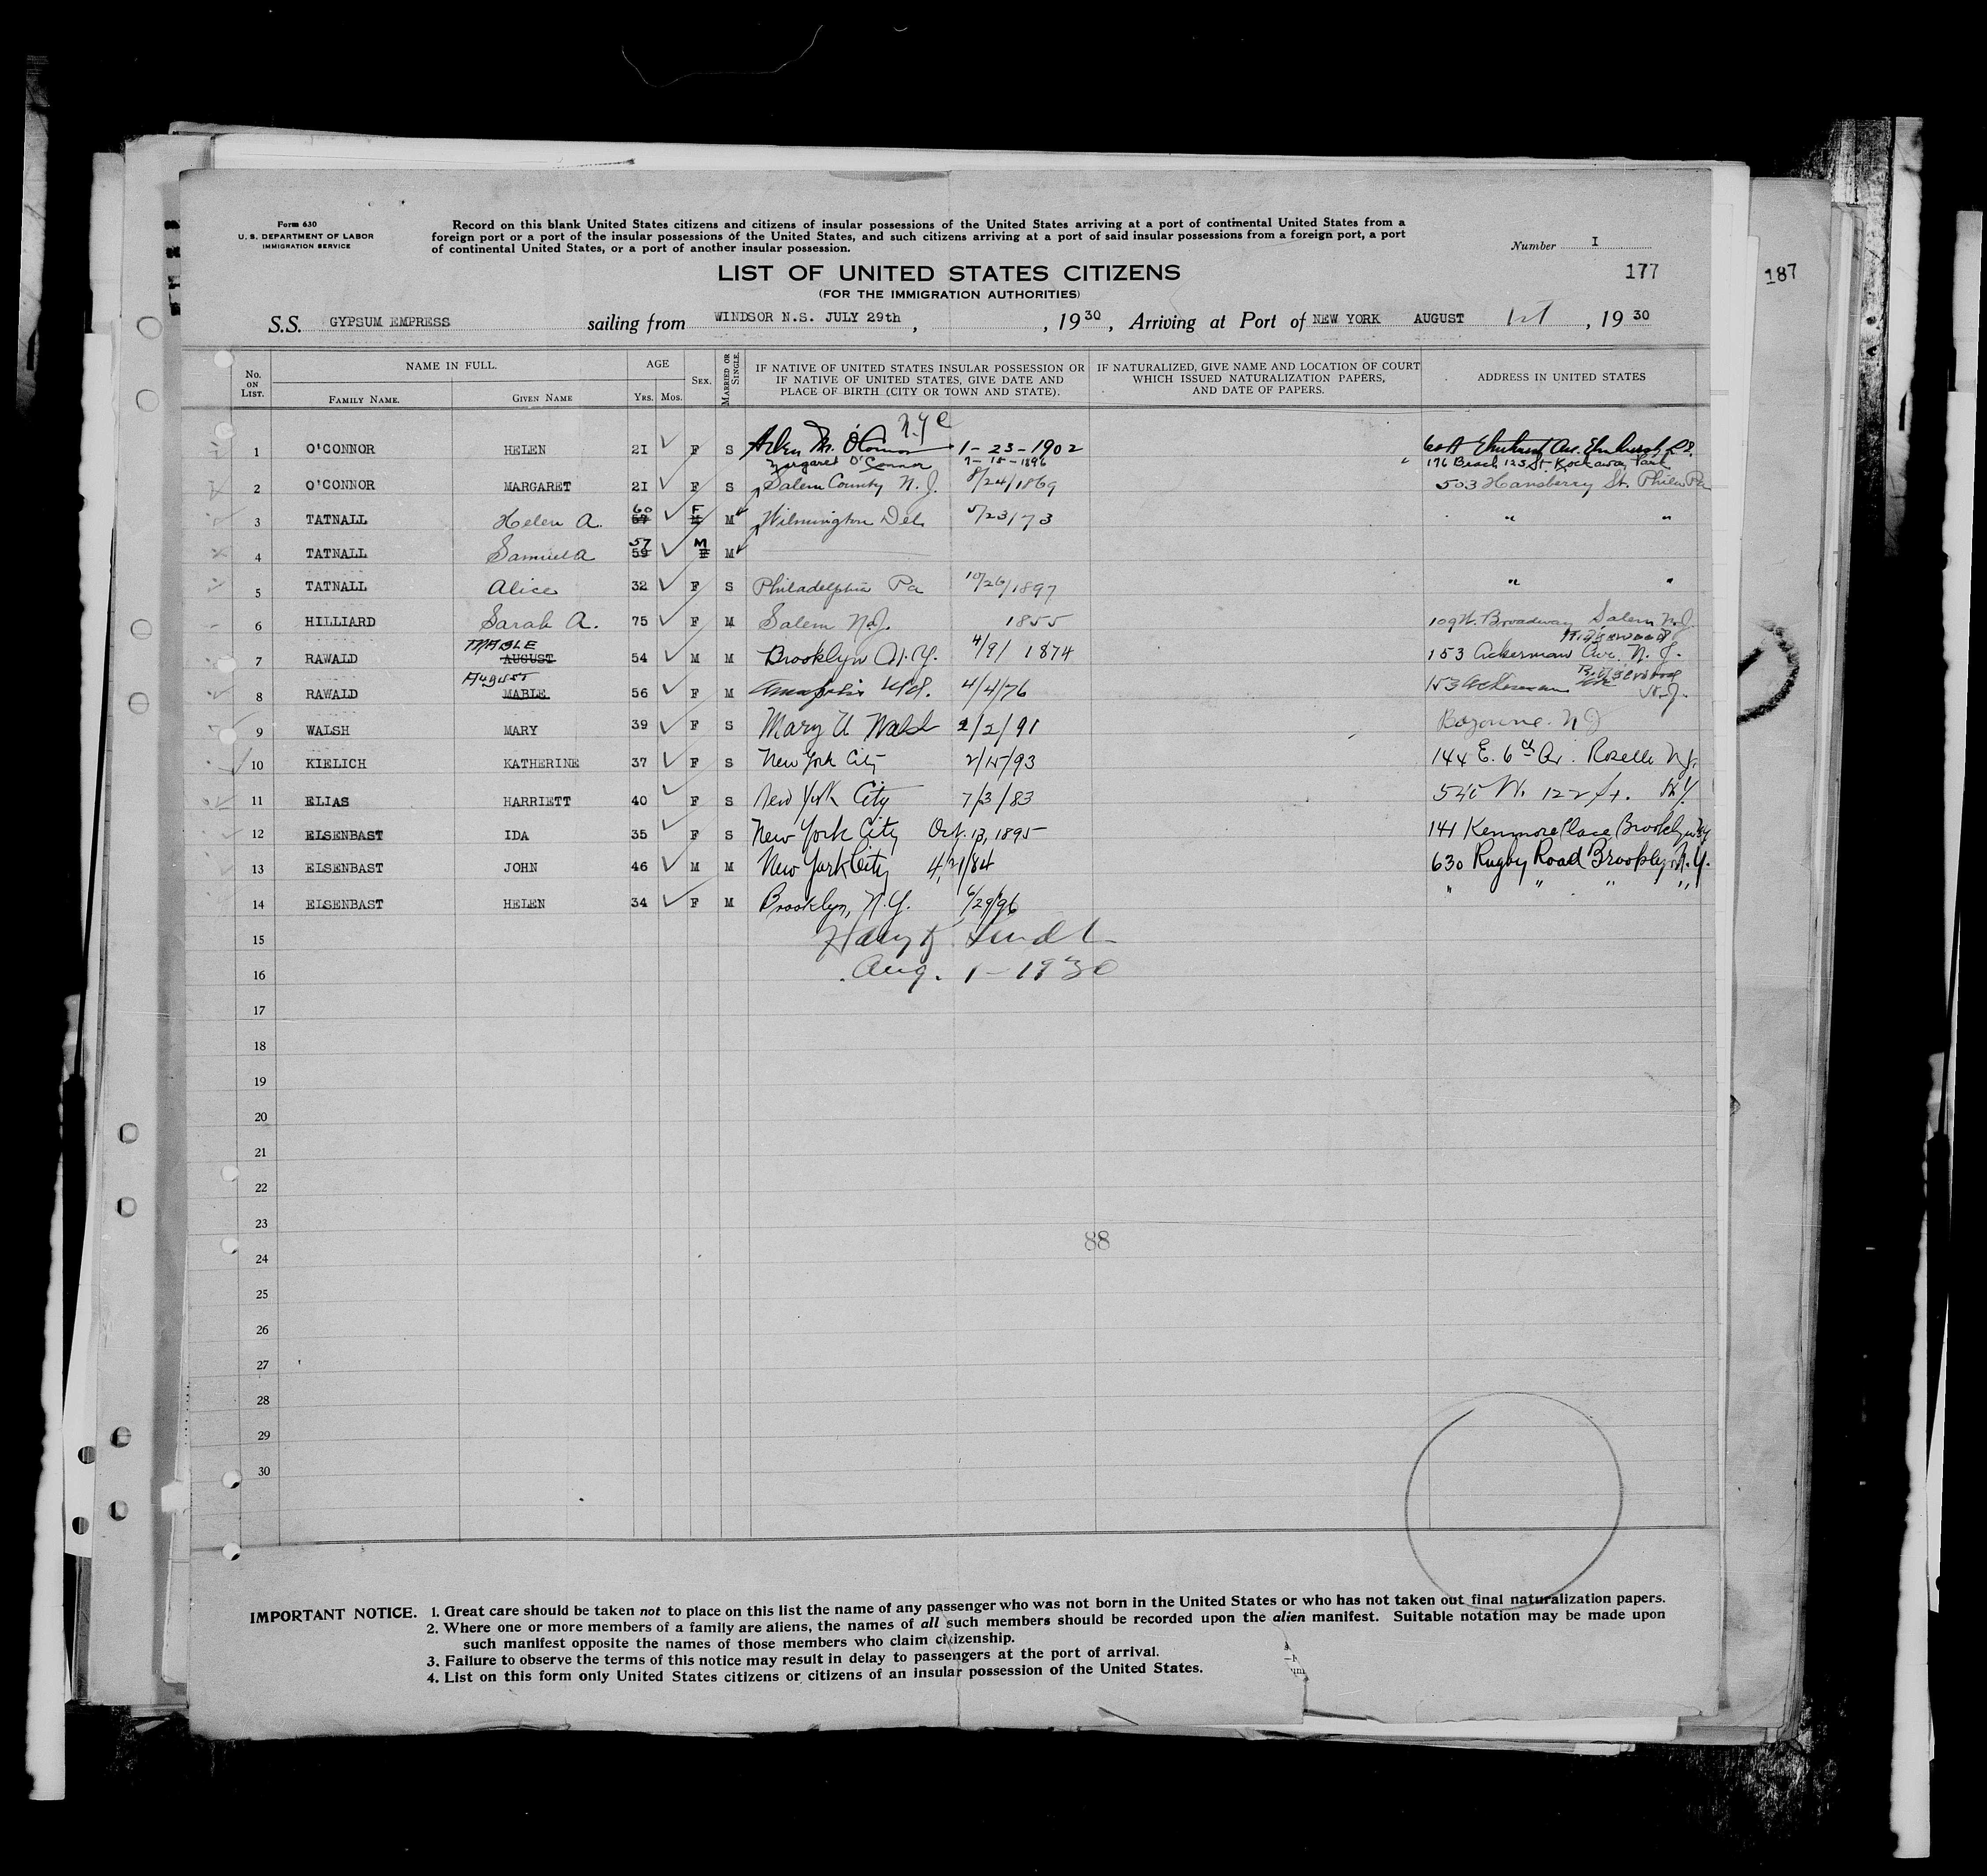 Form 630
U. S. DEPARTMENT OF LABOR
IMMIGRATION SERVICE
Record on this blank United States citizens and citizens of insular possessions of the United States arriving at a port of continental United States from a
foreign port or a port of the insular possessions of the United States, and such citizens arriving at a port of said insular possessions from a foreign port, a port
of continental United States, or a port of another insular possession.
Number I
LIST OF UNITED STATES CITIZENS
177
187
(FOR THE IMMIGRATION AUTHORITIES)
S.S. GYPSUM EMPRESS sailing from WINDSOR N.S. JULY 29th , , 1930 , Arriving at Port of NEW YORK AUGUST 1st , 19 30
No. ON LIST.
NAME IN FULL.
FAMILY NAME.
GIVEN NAME
AGE
YRS. MOS.
SEX.
MARRIED OR SINGLE.
IF NATIVE OF UNITED STATES INSULAR POSSESSION OR
IF NATIVE OF UNITED STATES, GIVE DATE AND
PLACE OF BIRTH (CITY OR TOWN AND STATE).
IF NATURALIZED, GIVE NAME AND LOCATION OF COURT
WHICH ISSUED NATURALIZATION PAPERS,
AND DATE OF PAPERS.
ADDRESS IN UNITED STATES
N.Y.C
1 O'CONNOR HELEN 21 F S Helen M. O'Connor 1-23-1902 Elmhurst Av. Elmhurst L.I.
Margaret O'Connor 7-18-1896 176 Beach 123 St. Rockaway Park
2 O'CONNOR MARGARET 21 F S Salem County N.J. 8/24/1869 503 Hansberry St. Phila Pa
3 TATNALL Helen A. 60 57 F M M Wilmington Del. 5/23/73 " "
4 TATNALL Samuel A 57 59 M F M
5 TATNALL Alice 32 F S Philadelphia Pa 10/26/1897 " "
6 HILLIARD Sarah A. 75 F M Salem N.J. 1855 109 W. Broadway Salem N.J.
MABLE Ridgewood
7 RAWALD AUGUST 54 M M Brooklyn N.Y. 4/9/ 1874 153 Ackerman Ave. N.J.
August Ridgewood
8 RAWALD MABLE 56 F M Annapolis Md. 4/4/76 153 Ackerman Ave N.J.
9 WALSH MARY 39 F S Mary A Walsh 2/2/91 Bayonne. N J
10 KIELICH KATHERINE 37 F S New York City 2/15/93 144 E. 6th Av. Roselle N.J.
11 ELIAS HARRIETT 40 F S New York City 7/3/83 W. 122 St. N.Y.
12 EISENBAST IDA 35 F S New York City Oct. 13, 1895 141 Kenmore Place Brooklyn N.Y.
13 EISENBAST JOHN 46 M M New York City 4/21/84 630 Rugby Road Brooklyn N.Y.
14 EISENBAST HELEN 34 F M Brooklyn, N.Y. 6/29/96 " " " "
15
16 Aug. 1-1930
17
18
19
20
21
22
23
88
24
25
26
27
28
29
30
IMPORTANT NOTICE. 1. Great care should be taken not to place on this list the name of any passenger who was not born in the United States or who has not taken out final naturalization papers.
2. Where one or more members of a family are aliens, the names of all such members should be recorded upon the alien manifest. Suitable notation may be made upon
such manifest opposite the names of those members who claim citizenship.
3. Failure to observe the terms of this notice may result in delay to passengers at the port of arrival.
4. List on this form only United States citizens or citizens of an insular possession of the United States.